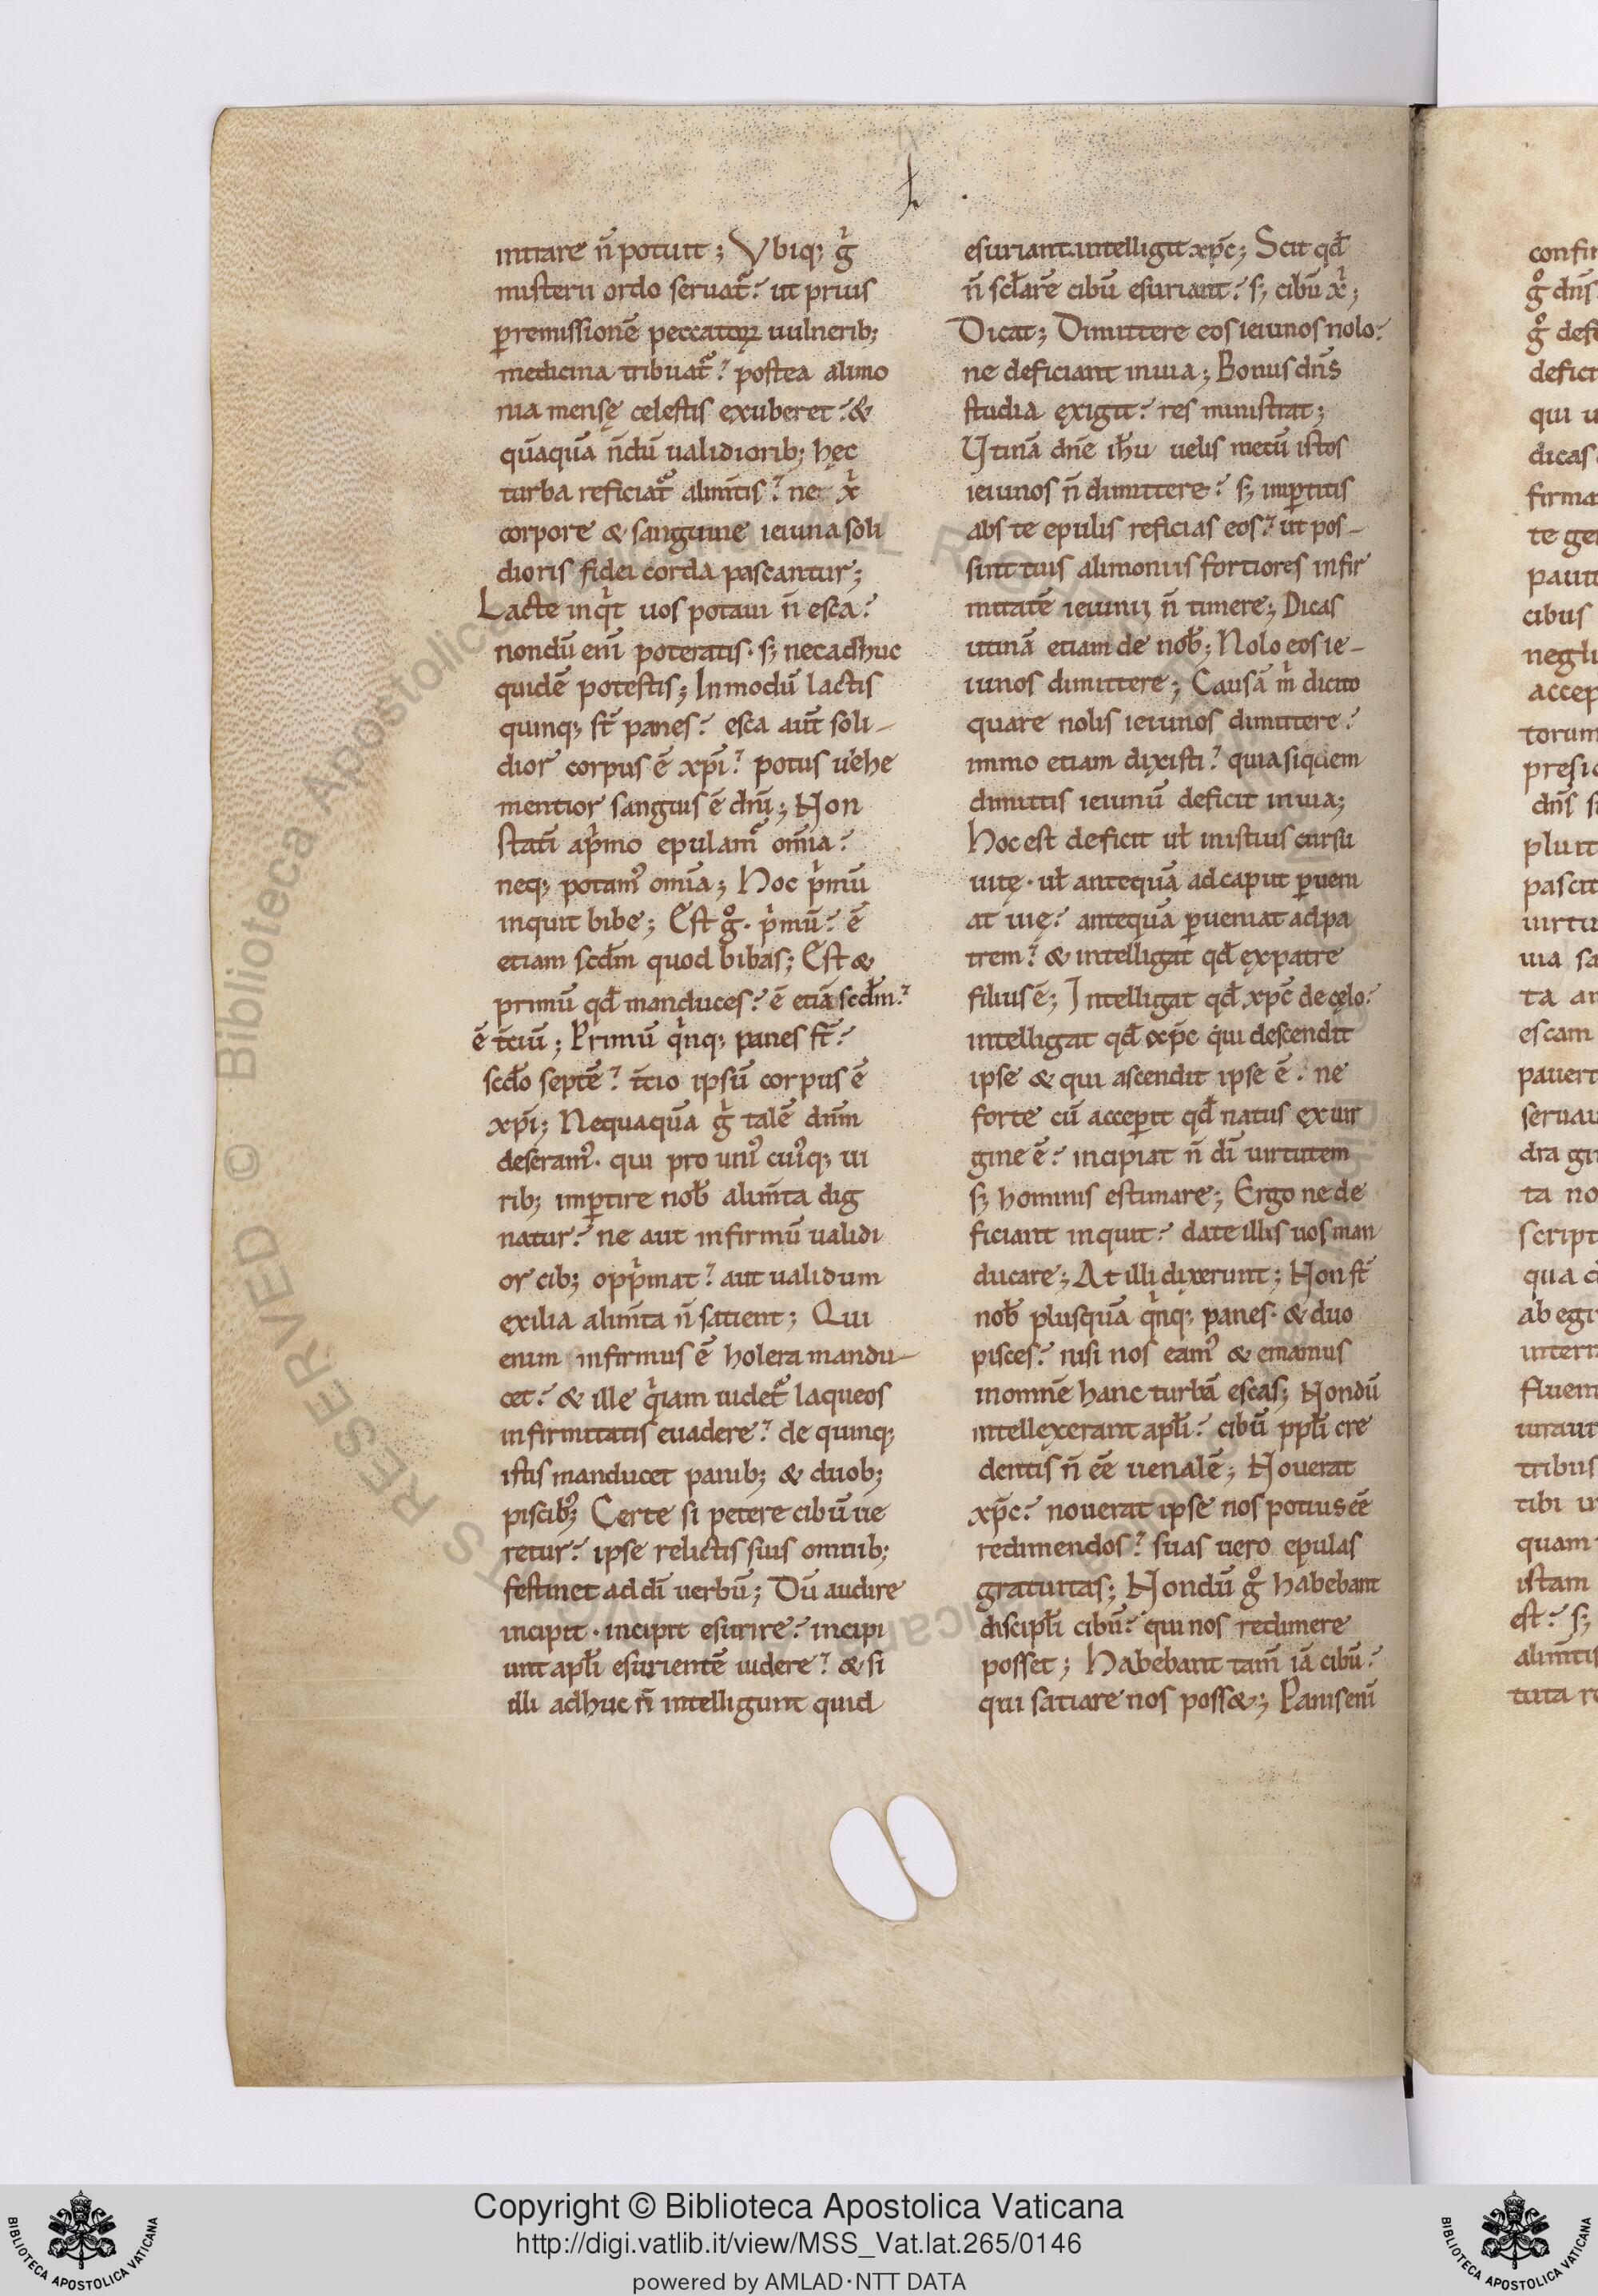 intrare n̄ potuit; Vbiq; gͥ
misterii ordo seruat᷒? ut prius
ꝑ remissionē peccatoꝝ uulnerib;
medicina tribuat᷒? postea alimo
nia mensę celestis exuberet? &
quāquā n̄dū ualidiorib; hęc
turba reficiat᷒ alim̄tis? nec xͥ
corpore & sanguine ieiuna soli
dioris fidei corda pascantur;
Lacte inqͥt uos potaui n̄ esca?
nondū eni᷒ poteratis. s; nec adhuc
quidē potestis; In modū lactis
quinq; st̄ panes? esca aut̄ soli-
dior corpus ē xp̄i? potus uehe
mentior sanguis ē dn̄i; Non
stati᷒ a pͥmo epulam᷒ om̄ia?
neq; potam᷒ omīa; Hoc pͥmū
inquit bibe; Est gͦ. pͥmū? ē
etiam scd̄m quod bibas; Est &
primū qd̄ manduces? ē etiā scd̄m?
ē t̄ciū; Primū qͥnq; panes st̄?
scd̄o septē? t̄cio ipsū corpus ē
xp̄i; Nequaquā gͥ talē dn̄m
deseram᷒. qui pro uni᷒ cui᷒q; ui
rib; imꝑtire nob̄ alim̄ta dig
natur? ne aut infirmū validi
or cib; oppͥmat? aut ualidum
exilia alim̄ta n̄ satient; Qui
enim infirmus ē holera mandu-
cet? & ille qͥ iam uidet᷒ laqueos
infirmitatis euadere? de quinq;
istis manducet panib; & duob;
piscib; Certe si petere cibū ue
retur? ipse relictis suis omnib;
festinet ad dī uerbū; Dū audire
incipit. incipit esurire? incipi
unt apl̄i esurientē uidere? & si
illi adhuc n̄ intelligunt quid
esuriant. intelligit xp̄c; Scit qd̄
n̄ scl̄arē cibū esuriant? s; cibū xͥ;
Dicat; Dimittere eos ieiunos nolo?
ne deficiant in uia; Bonus dn̄s
studia exigit? res ministrat;
Vtinā dn̄e ih̄u uelis mecū istos
ieiunos n̄ dimittere? s; imꝑtitis
abs te epulis reficias eos? ut pos-
sint tuis alimoniis fortiores infir
mitatē ieiunii n̄ timere; Dicas
utinā etiam de nob̄; Nolo eos ie-
iunos dimittere; Causā mͥ dicito
quare nolis ieiunos dimittere?
immo etiam dixisti? quia siquem
dimittis ieiunū deficit in uia;
Hoc est deficit ul̄ in istius cursu
uitę. ul̄ antequā ad caput ꝑueni
at uię? antequā ꝑueniat ad pa
trem? & intelligat qd̄ ex patre
filius ē; Intelligat qd̄ xp̄c de cęlo?
intelligat qd̄ xp̄c qui descendit
ipse & qui ascendit ipse ē? ne
forte cū acceꝑit qd̄ natus ex uir
gine ē? incipiat n̄ dī uirtutem
s; hominis estimare; Ergo ne de
ficiant inquit? date illis uos man
ducare; At illi dixerunt; Non st̄
nob̄ plusquā qͥnq; panes. & duo
pisces? nisi nos eam᷒ & emamus
in omnē hanc turbā escas; Nondū
intellexerant apl̄i? cibū ppl̄i cre
dentis n̄ eē uenalē; Nouerat
xp̄c? nouerat ipse nos potius eē
redimendos? suas uero epulas
gratuitas; Nondū gͦ habebant
discipl̄i cibū? qui nos redimere
posset; Habebant tam̄ iā cibū?
qui satiare nos poss&; Panis eni᷒
Copyright © Biblioteca Apostolica Vaticana
http://digi.vatlib.it/view/MSS_Vat.lat.265/0146
powered by AMLAD·NTT DATA